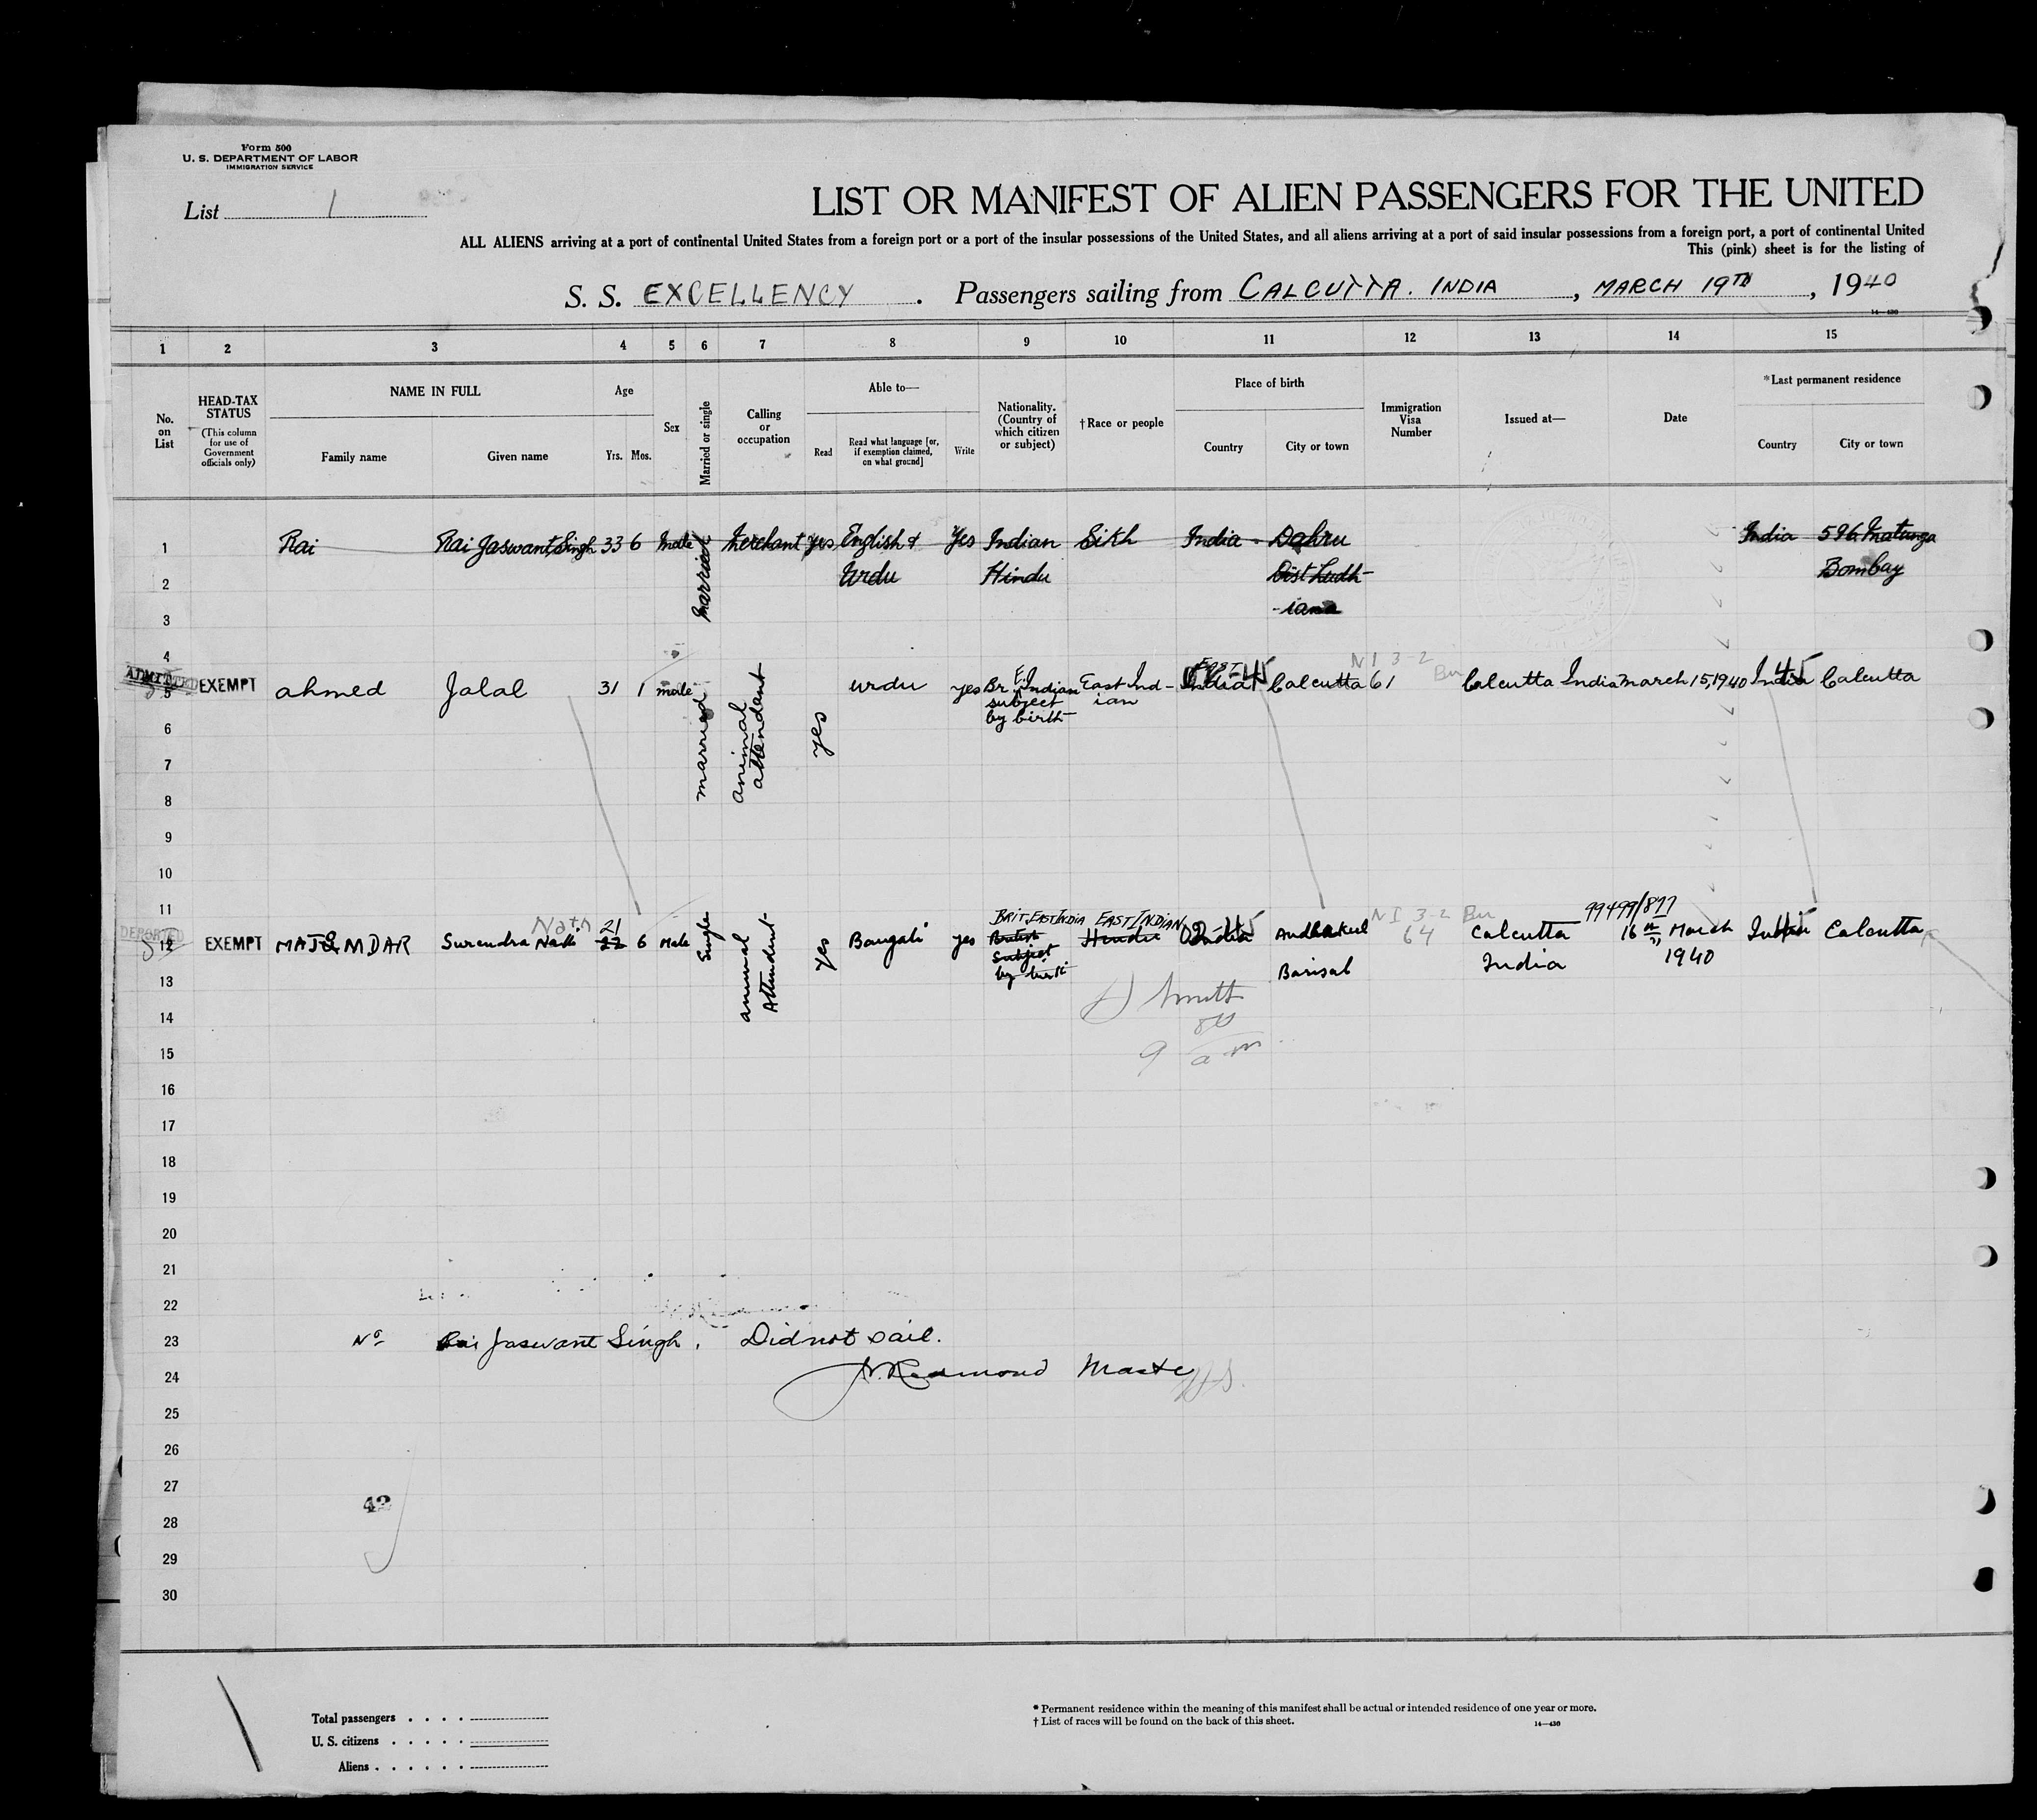 Form 500
U. S. DEPARTMENT OF LABOR
IMMIGRATION SERVICE
List 1
LIST OR MANIFEST OF ALIEN PASSENGERS FOR THE UNITED
ALL ALIENS arriving at a port of continental United States from a foreign port or a port of the insular possessions of the United States, and all aliens arriving at a port of said insular possessions from a foreign port, a port of continental United
This (pink) sheet is for the listing of
S. S. EXCELLENCY . Passengers sailing from CALCUTTA. INDIA , MARCH 19TH , 1940
14—430
1 2 3 4 5 6 7 8 9 10 11 12 13 14 15
No. on List
HEAD-TAX STATUS
(This column for use of Government officials only)
NAME IN FULL
Family name Given name
Age
Yrs. Mos.
Sex
Married or single
Calling or occupation
Able to—
Read
Read what language [or, if exemption claimed, on what ground]
Write
Nationality. (Country of which citizen or subject)
†Race or people
Place of birth
Country City or town
Immigration Visa Number
Issued at—
Date
*Last permanent residence
Country City or town
1 Rai Rai Jaswant Singh 33 6 Male Married Merchant Yes English & Yes Indian Sikh India - Dahru India 596 Matunga
2 Urdu Hindu Dist Ludh- Bombay
3 -iana
4
ADMITTED
5 EXEMPT ahmed Jalal 31 1 male married animal attendant yes urdu yes Br. E. Indian East Ind- EAST India 45 Calcutta NI 3-2 61 Calcutta India March 15, 1940 India 45 Calcutta
subject ian
by birth
6
7
8
9
10
11 BRIT. EAST INDIA EAST INDIAN 99499/877
DEPORTED
12 EXEMPT MAJUMDAR Surendra Nath Nath 21 22 6 Male Single animal Attendent Yes Bangali yes British Hindu India 45 Andhakul NI 3-2 64 Calcutta 16th March India 45 Calcutta
Subject Barisal India 1940
by birth
13
14
15 9 a m
16
17
18
19
20
21
22
23 No Rai Jaswant Singh. Did not sail.
24 J. Redmond Master
25
26
27
42
28
29
30
Total passengers
U. S. citizens
Aliens
* Permanent residence within the meaning of this manifest shall be actual or intended residence of one year or more.
† List of races will be found on the back of this sheet.
14—430